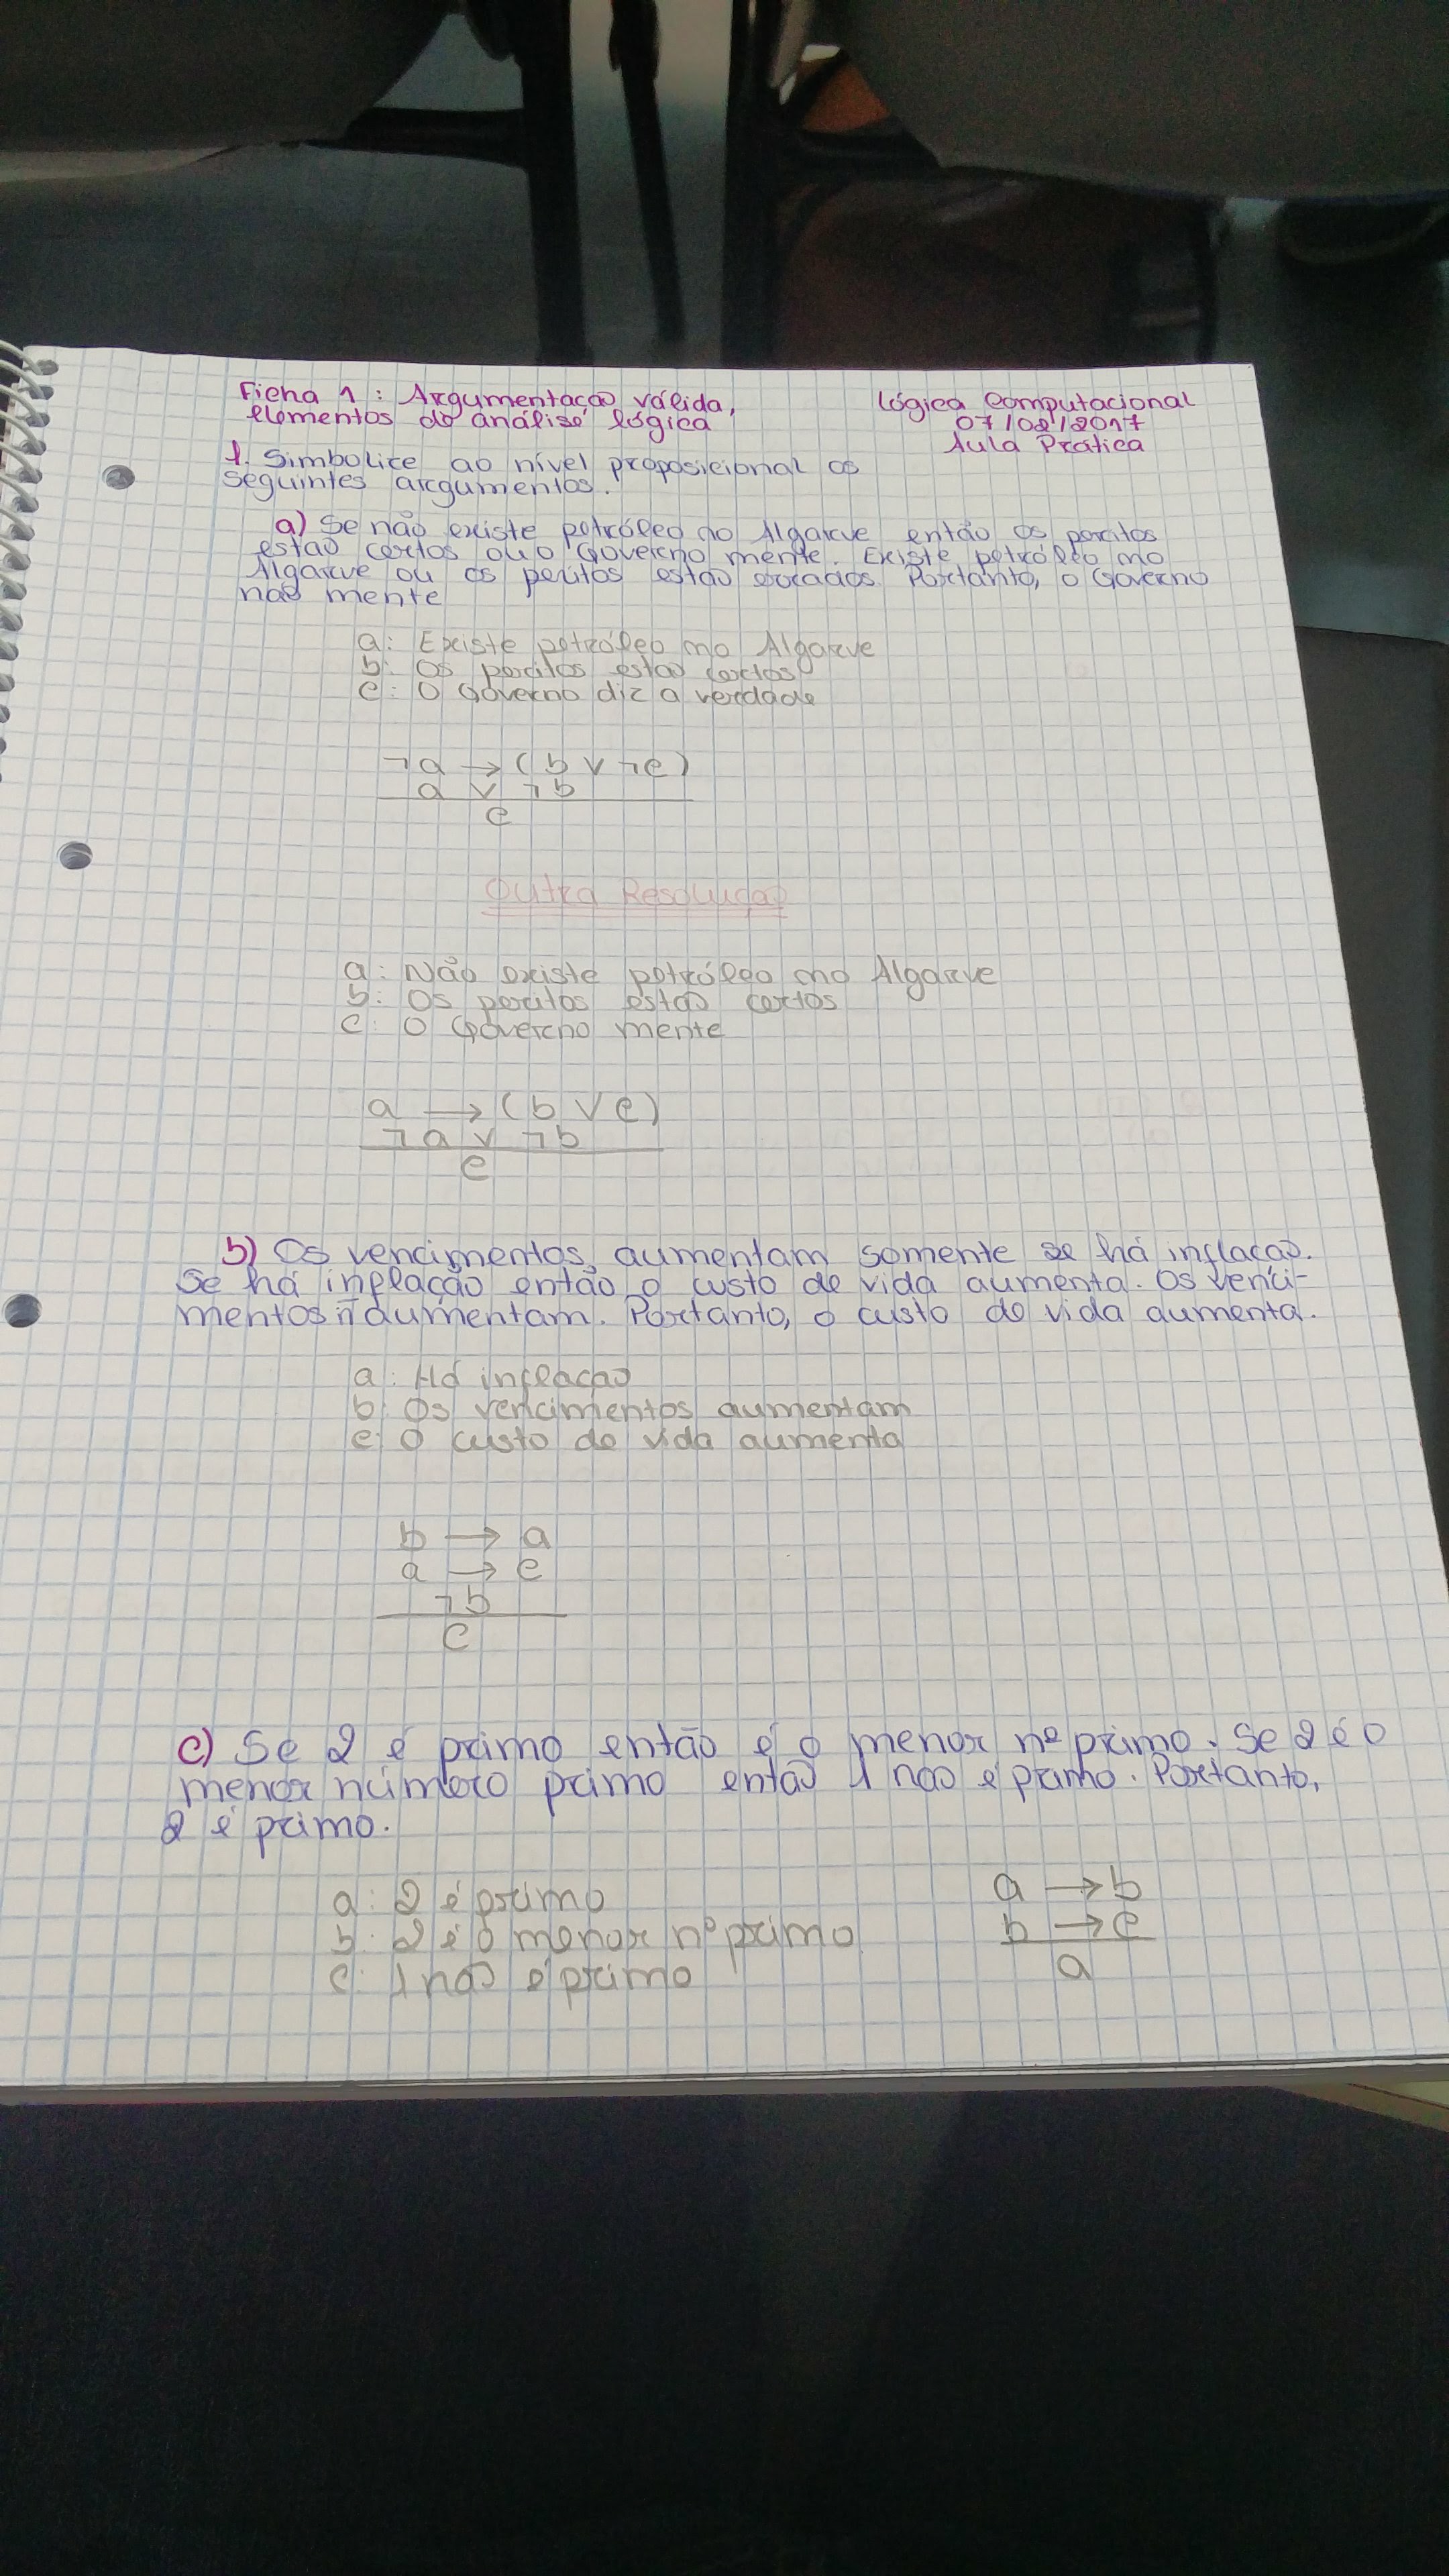 Ficha 1: Argumentação válida,
elementos de análise lógica
Lógica Computacional
07/02/2017
Aula Prática
1. Simbolize ao nível proposicional os
seguintes argumentos.
a) Se não existe petróleo no Algarve então os peritos
estão certos ou o Governo mente. Existe petróleo no
Algarve ou os peritos estão errados. Portanto, o Governo
não mente
a: Existe petróleo no Algarve
b: Os peritos estão certos
c: O Governo diz a verdade
¬a → (b ∨ ¬c)
a ∨ ¬b
c
Outra Resolução
a: Não existe petróleo no Algarve
b: Os peritos estão certos
c: O Governo mente
a → (b ∨ c)
¬a ∨ ¬b
c
b) Os vencimentos aumentam somente se há inflação.
Se há inflação então o custo de vida aumenta. Os venci-
mentos ñ aumentam. Portanto, o custo de vida aumenta.
a: Há inflação
b: Os vencimentos aumentam
c: O custo de vida aumenta
b → a
a → c
¬b
c
c) Se 2 é primo então é o menor nº primo. Se 2 é o
menor número primo então 1 não é primo. Portanto,
2 é primo.
a: 2 é primo
b: 2 é o menor nº primo
c: 1 não é primo
a → b
b → c
a